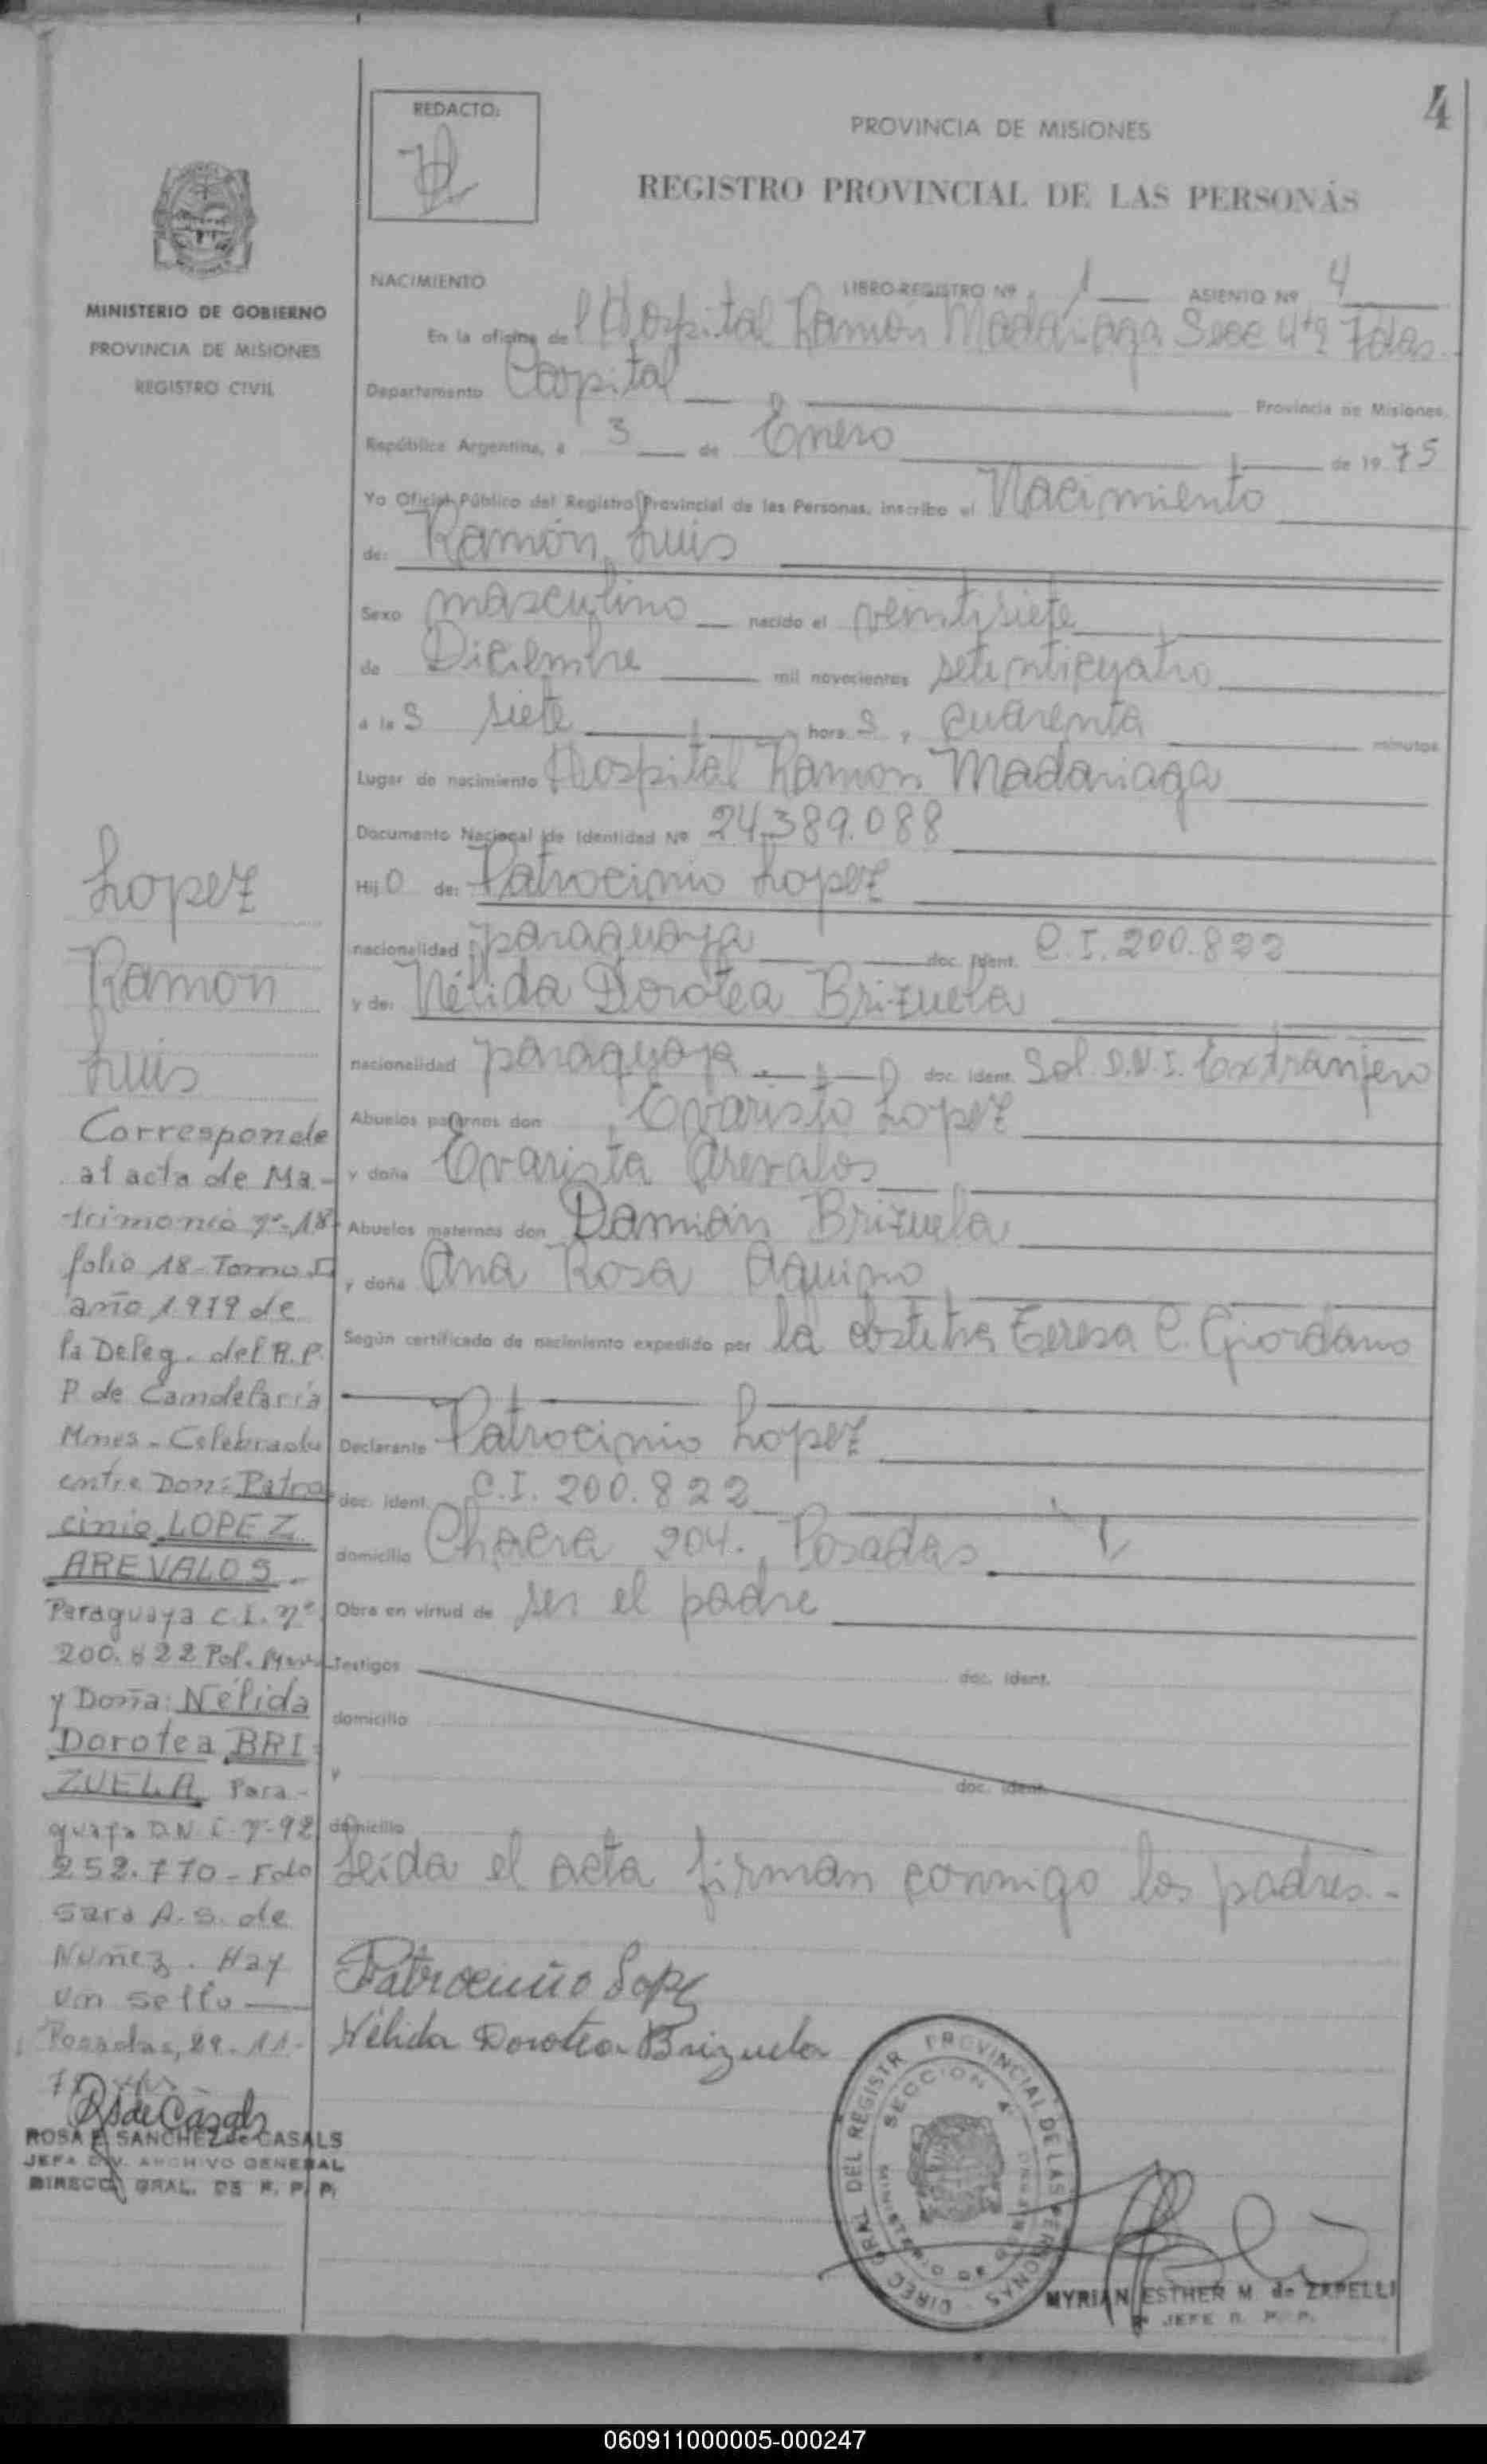 4
REDACTO:
PROVINCIA DE MISIONES
REGISTRO PROVINCIAL DE LAS PERSONAS
MINISTERIO DE GOBIERNO
PROVINCIA DE MISIONES
REGISTRO CIVIL
NACIMIENTO LIBRO-REGISTRO Nº 1 ASIENTO Nº 4
En la oficina de l Hospital Ramon Madariaga Secc 4ta Pdas.
Departamento Capital Provincia de Misiones,
República Argentina, a 3 de Enero de 1975
Yo Oficial Público del Registro Provincial de las Personas, inscribo el Nacimiento
de: Ramón Luis
Sexo masculino nacido el veintisiete
de Diciembre mil novecientos setenticuatro
a las siete horas y cuarenta minutos
Lugar de nacimiento Hospital Ramon Madariaga
Documento Nacional de Identidad Nº 24.389.088
Hijo de: Patrocinio Lopez
nacionalidad paraguaya doc. ident. C.I. 200.822
y de: Nélida Dorotea Brizuela
nacionalidad paraguaya doc. ident. Sol. D.N.I. Extranjero
Abuelos paternos don Evaristo Lopez
y doña Evarista Arevalos
Abuelos maternos don Damián Brizuela
y doña Ana Rosa Aquino
Según certificado de nacimiento expedido por la obstetra Teresa C. Giordano
Declarante Patrocinio Lopez
doc. ident. C.I. 200.822
domicilio Chacra 204. Posadas
Obra en virtud de ser el padre
Testigos doc. ident.
domicilio
y doc. ident.
domicilio
Leída el acta firman conmigo los padres.-
Patrocinio Lopez
Nélida Dorotea Brizuela
Lopez
Ramon
Luis
Corresponde
al acta de Ma-
trimonio nº 18
folio 18-Tomo I
año 1979 de
la Deleg. del R.P.
P. de Candelaria
Mnes - Celebrado
entre Don: Patro
cinio LOPEZ
AREVALOS -
Paraguaya C.I. nº
200.822 Pol. Mnes
y Doña: Nélida
Dorotea BRI
ZUELA Para-
guaya D.N.I. nº 92
252.770 - Fdo
Sara A. S. de
Nuñez. Hay
un sello
Posadas, 29-11-
ROSA E. SANCHEZ de CASALS
JEFA DIV. ARCHIVO GENERAL
DIRECC. GRAL. DE R. P. P.
DIREC GRAL DEL REGISTR PROVINCIAL DE LAS PERSONAS
SECCION 4ª
MINISTERIO DE GOBIERNO
MYRIAN ESTHER M. de ZAPELLI
JEFE R. P. P.
060911000005-000247